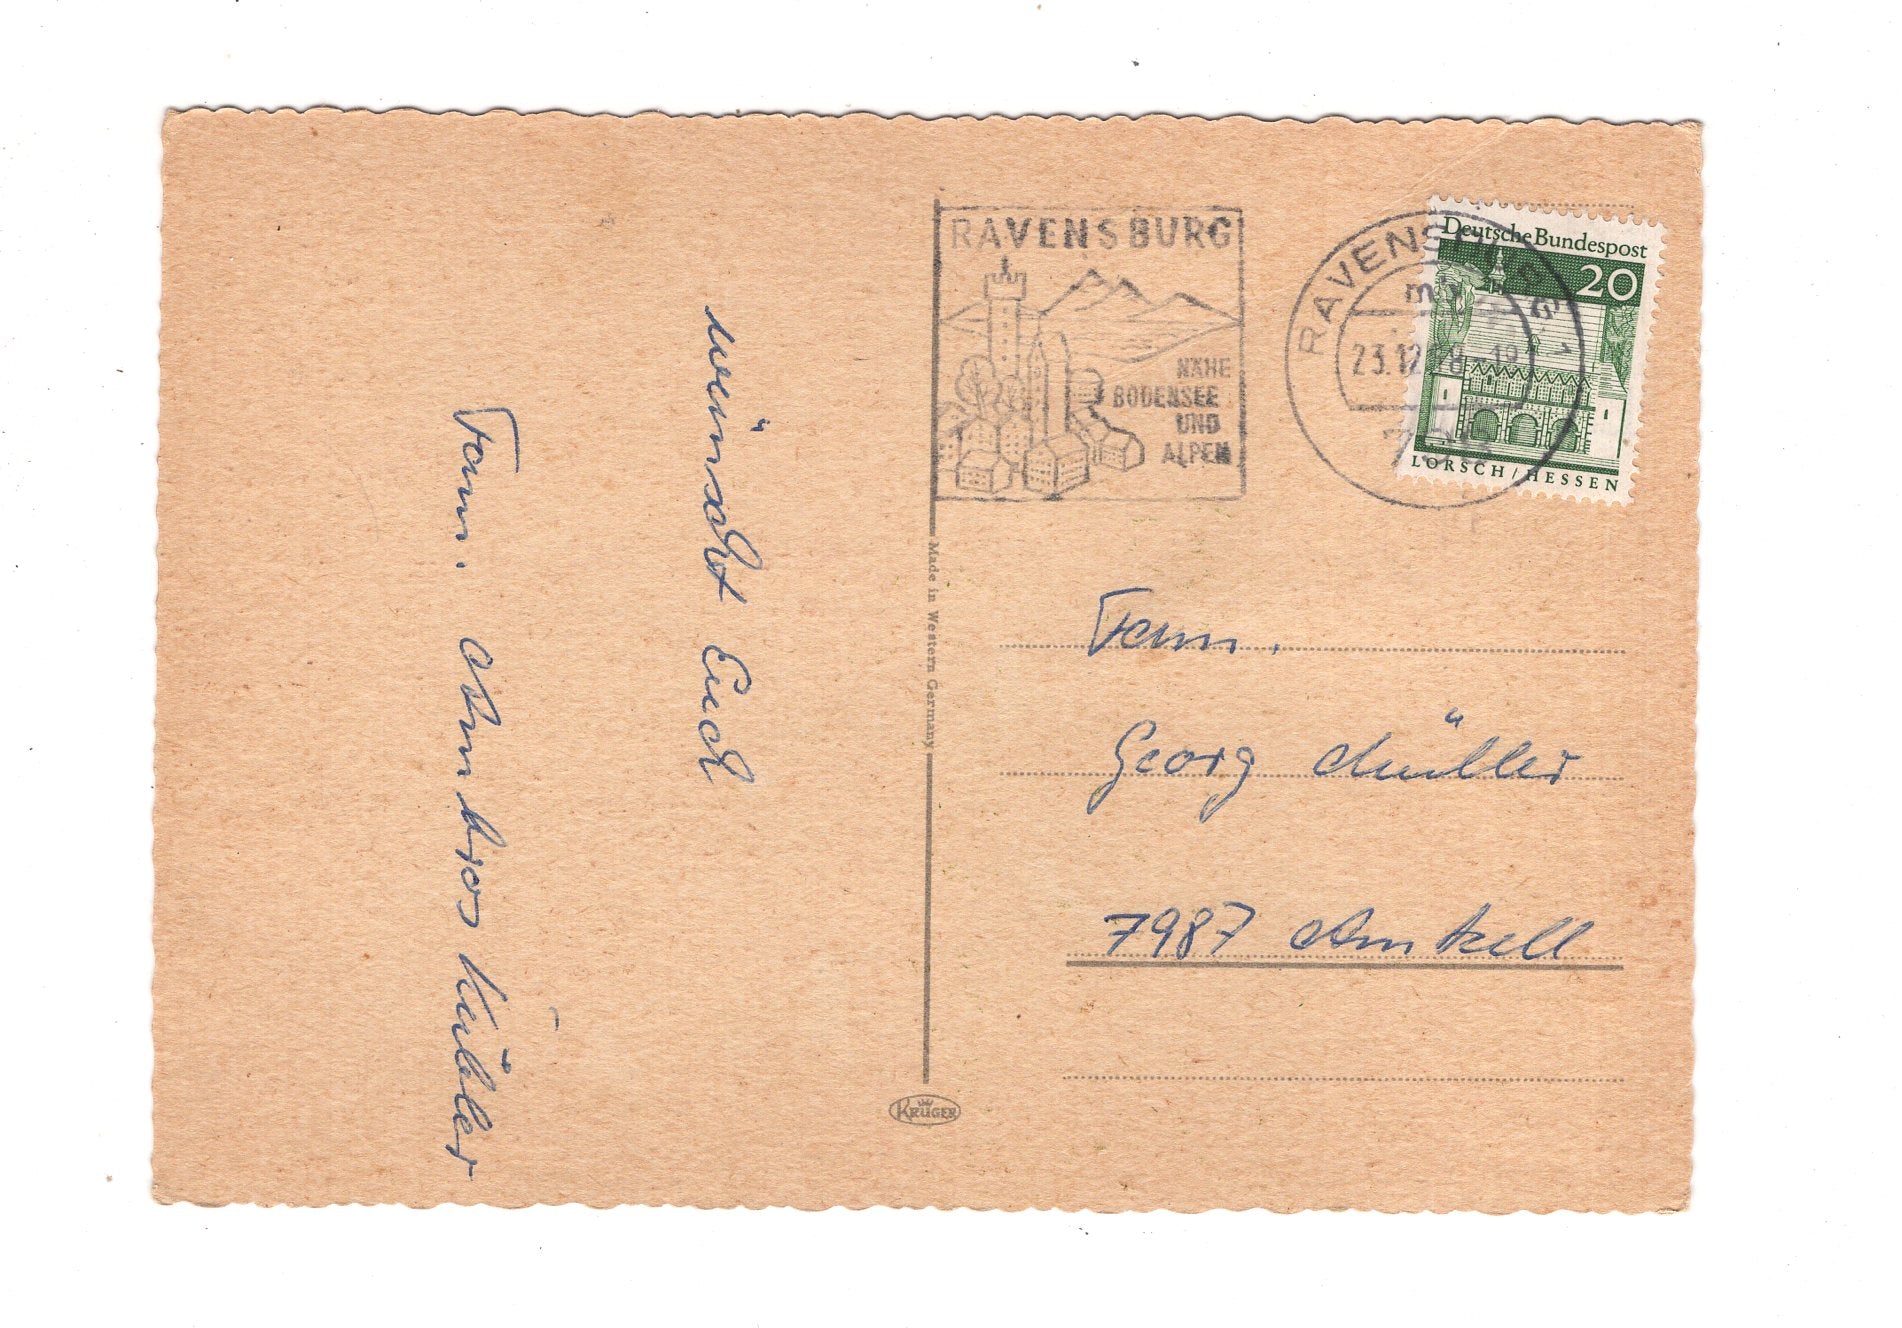 wünscht Euch
Fam. Ambros Küble
RAVENSBURG
NÄHE
BODENSEE
UND
ALPEN
RAVENSBURG 1
mb
23.12.68-19
Deutsche Bundespost
20
LORSCH/HESSEN
Made in Western Germany
Fam.
Georg Müller
7987 Amtzell
KRÜGER